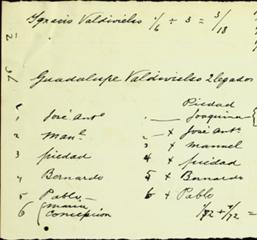 Ignacio Valdivielso 1/6 ÷ 3 = 3/18
Guadalupe Valdivielso 2 legados
Piedad
1 José Antº Joaquina
2 Manl 2 + José Antº
3 piedad 3 + manuel
4 Bernardo 4 + piedad
5 Pablo 5 + Bernardo
6 maria Concepcion 6 + Pablo
1/72 + 4/72 =